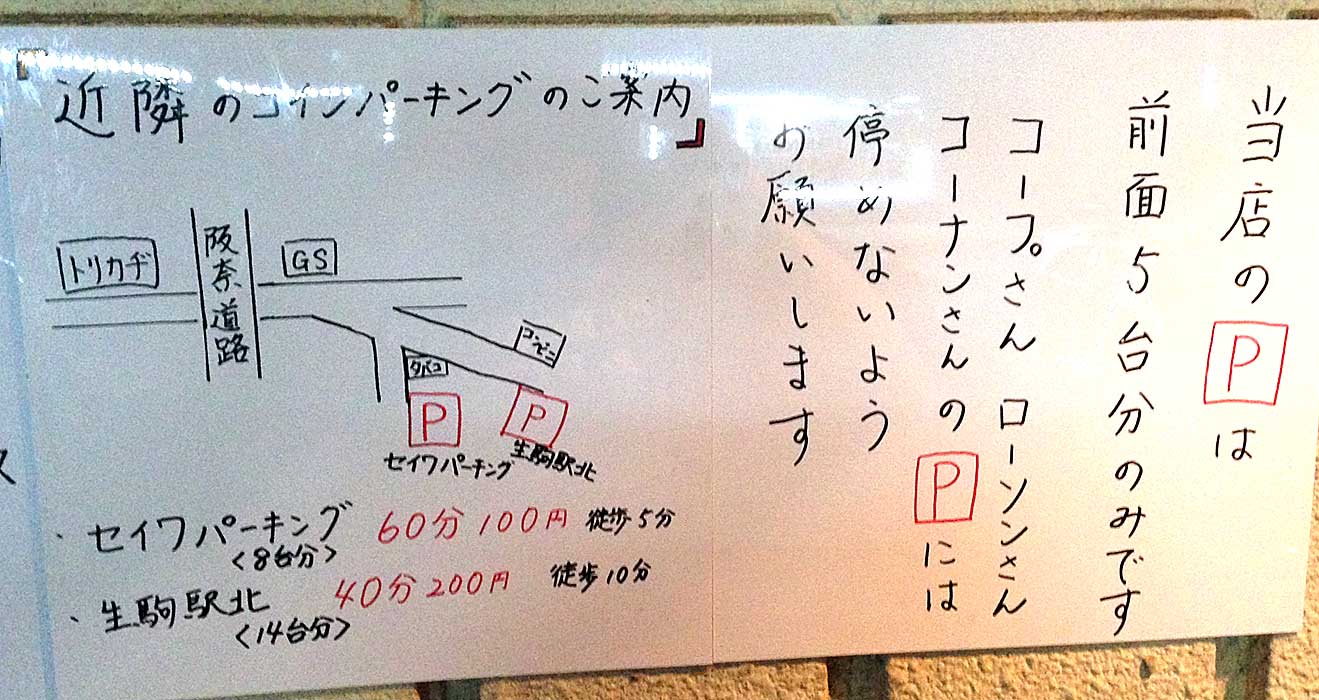 「近隣のコインパーキングのご案内」
トリカヂ
阪奈道路
GS
コンビニ
タバコ
P
P
セイワパーキング
生駒駅北
・セイワパーキング 60分100円 徒歩5分
<8台分>
・生駒駅北 40分200円 徒歩10分
<14台分>
当店のPは
前面5台分のみです
コープさん ローソンさん
コーナンさんのPには
停めないよう
お願いします
ス